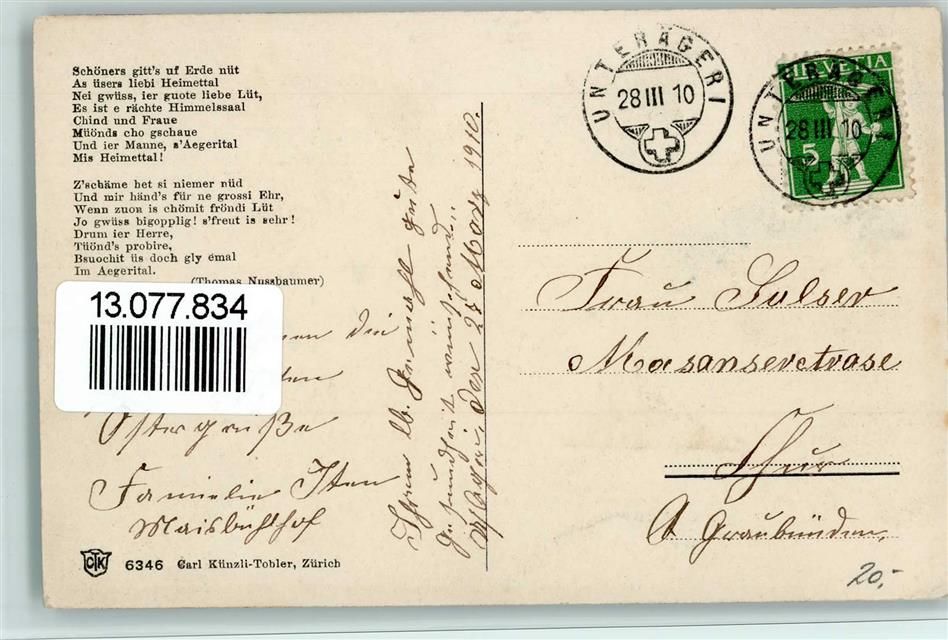 Schöners gitt's uf Erde nüt
As üsers liebi Heimettal
Nei gwüss, ier guote liebe Lüt,
Es ist e rächte Himmelssaal
Chind und Fraue
Müönds cho gschaue
Und ier Manne, s'Aegerital
Mis Heimettal!
Z'schäme het si niemer nüd
Und mir händ's für ne grossi Ehr,
Wenn zuon is chömit fröndi Lüt
Jo gwüss bigopplig! s'freut is sehr!
Drum ier Herre,
Tüönd's probire,
Bsuochit üs doch gly émal
Im Aegerital.
(Thomas Nussbaumer)
13.077.834
die
Ostergrüße
Familie Iten
Maisbühlhof
Ihrem lb. Gemahl gute
Gesundheit wünschend
den 28 März 1910.
6346 Carl Künzli-Tobler, Zürich
CKT
UNTERÄGERI
28 III 10
HELVETIA
5
UNTERÄGERI
28 III 10
Frau Sulser
Masanserstrase
Chur
Graubünden
20,-